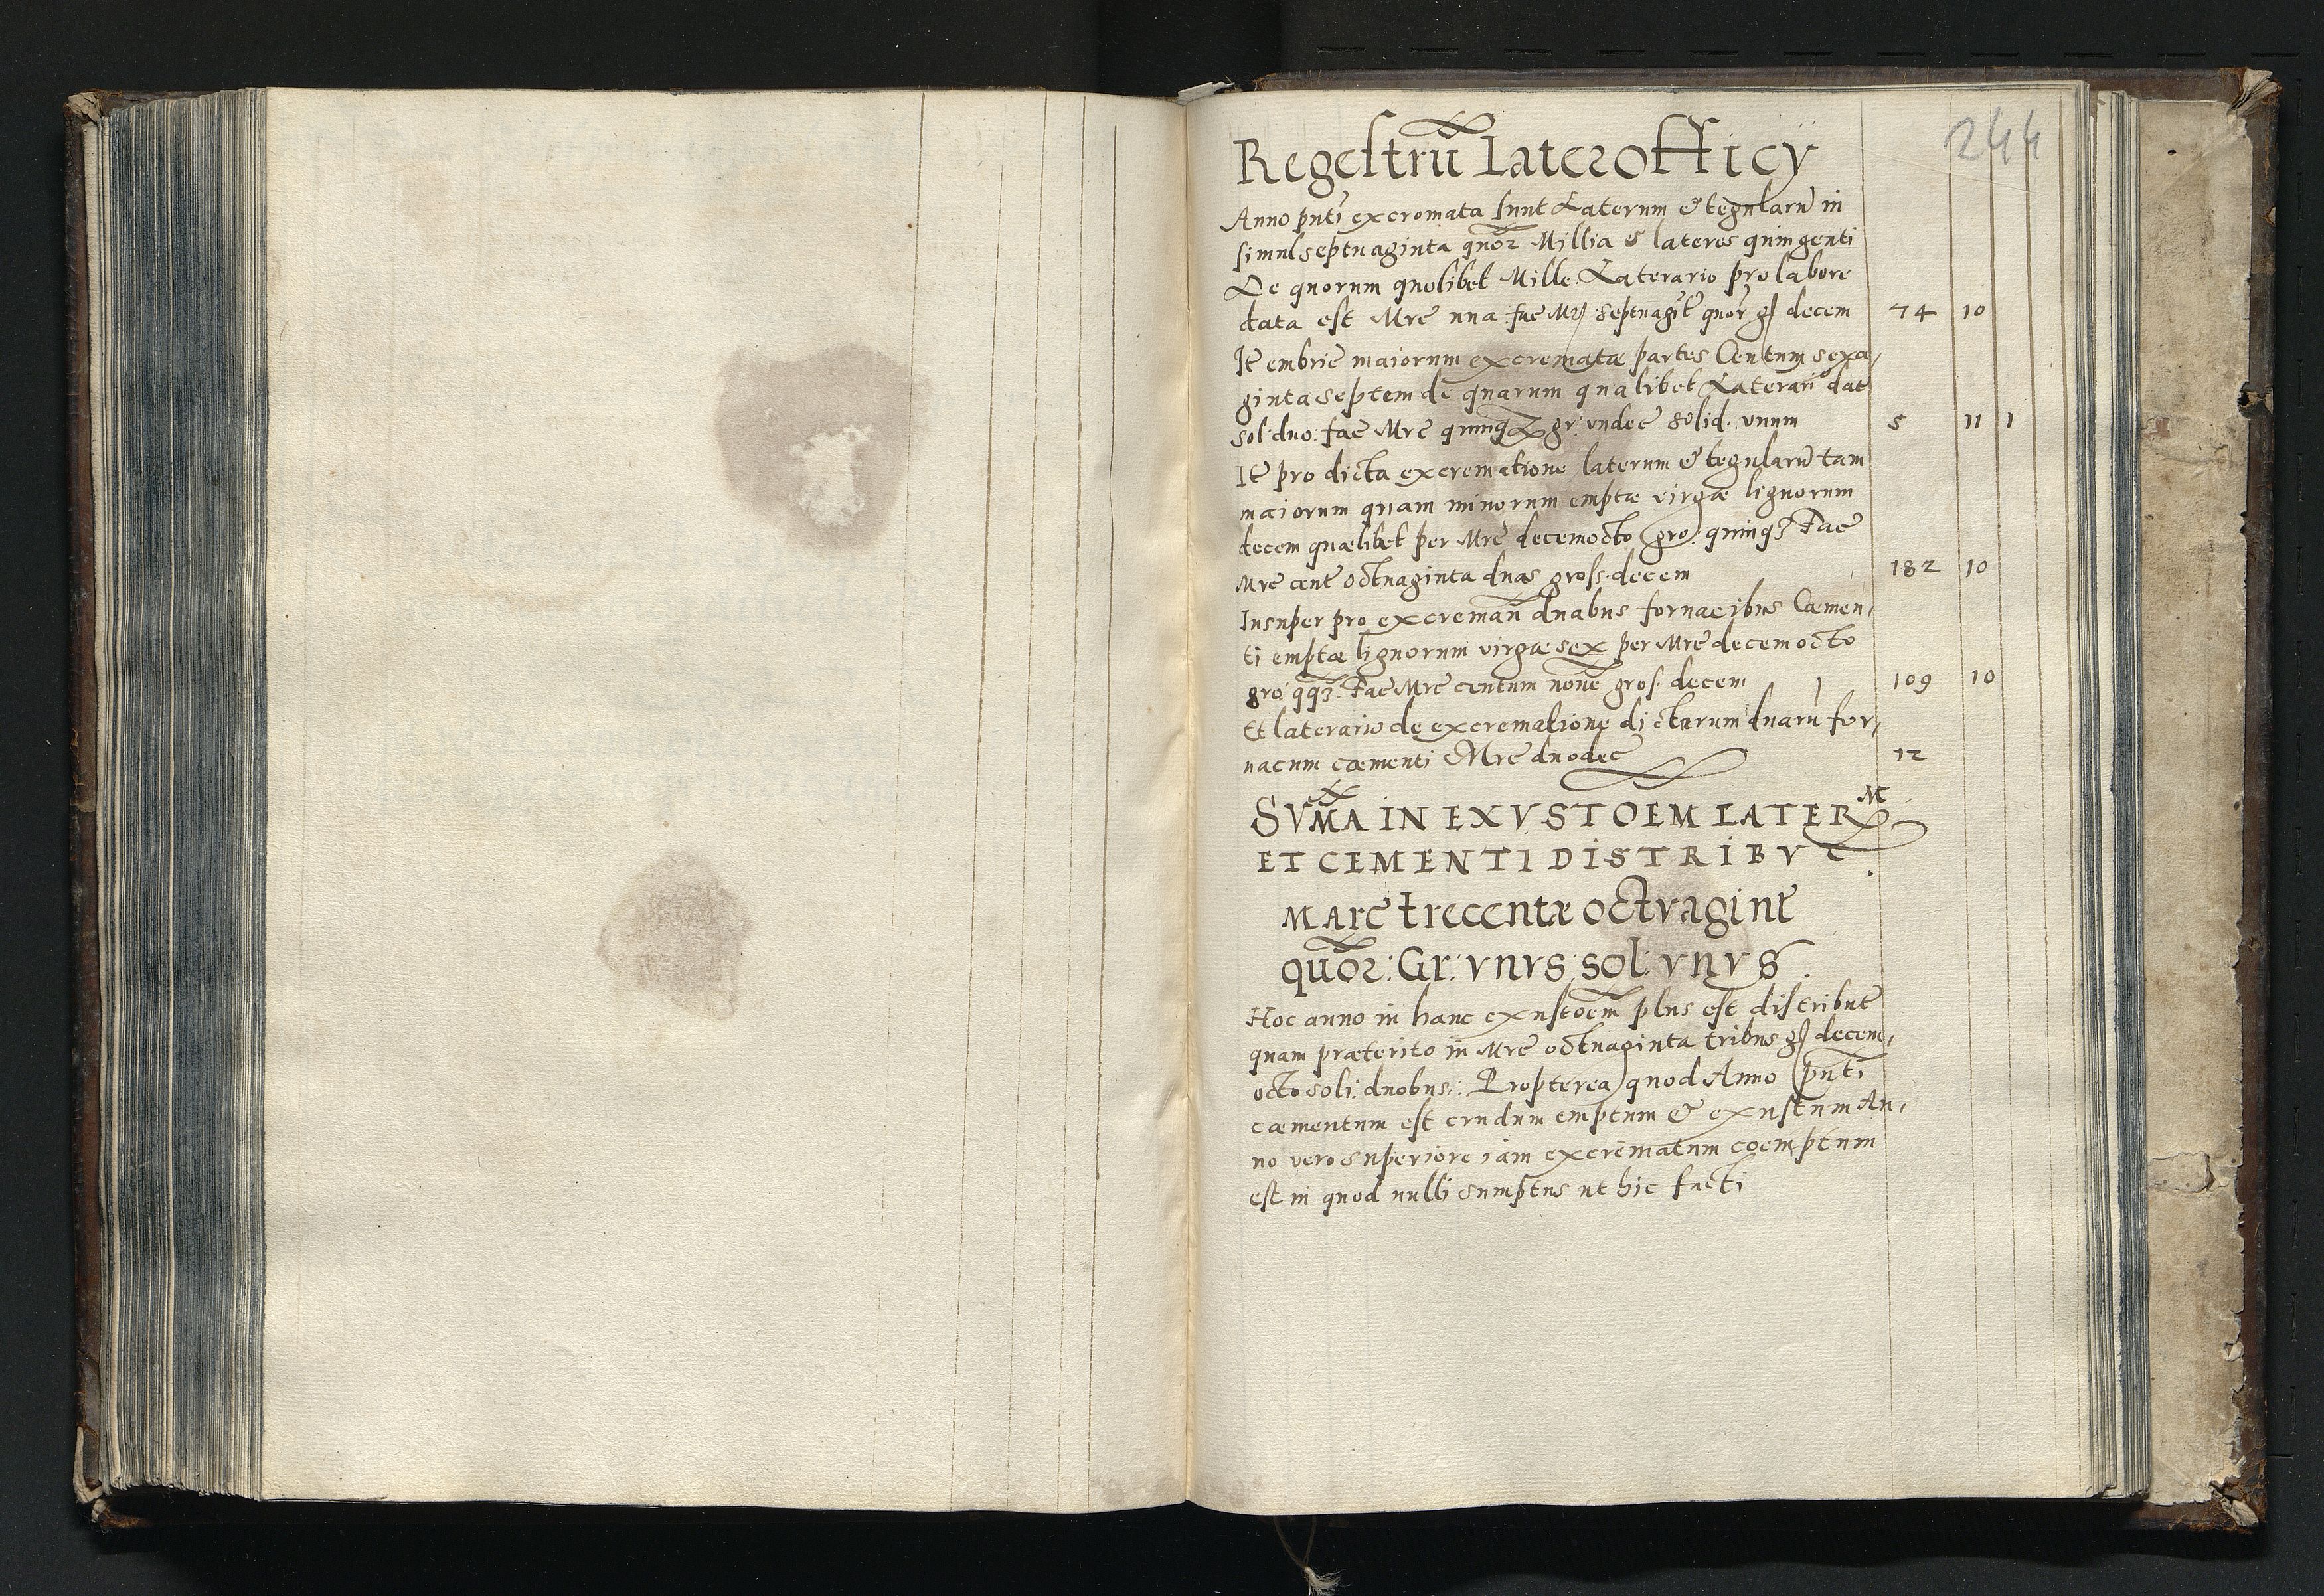 244
Regestrū Laterofficÿ
Anno pnti excromata sunt Laterum & tegularū in
simul septuaginta quōr Millia & lateres quingenti
De quorum quolibet Mille Laterario pro labore
data est Mrē una fac Mr septuagīt quōr gs decem 74 10
Itē embrie maiorum excrematæ partes Centum sexa,
ginta septem de quarum qualibet Laterario dat
sol: duo: fac Mrē quinqȝ gr: undec solid. unum 5 11 1
Itē pro dicta excrematione laterum & tegularū tam
maiorum quam minorum emptæ virgæ lignorum
decem quælibet per Mrē decemocto gro: quinqȝ Fac
Mrē cent octuaginta duas gross. decem 182 10
Insuper pro excreman̄ duabus fornacibus Cæmen,
ti emptæ lignorum virgæ sex per Mrē decemocto
gro: qqȝ. Fac Mrē centum nonē gros. decem 109 10
Et laterario de excrematione dictarum duarū for,
nacum cæmenti Mrē duodec 12
SVM̄A IN EXVSTOEM LATERM
ET CEMENTI DISTRIBVT.
MArē trecentæ octvagint
quōr: Gr: vnvs: sol: vnvs.
Hoc anno in hanc exustōem plus est distribut
quam præterito in Mrē octuaginta tribus gs decem,
octo soli: duobus: Propterea quod Anno pnti
cæmentum est crudum emptum & exustum An,
no vero superiore iam excrematum coemptum
est in quod nulli sumptus ut hic facti